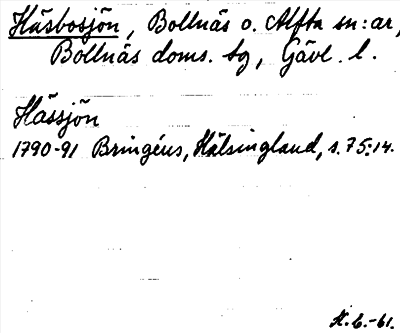 Häsbosjön, Bollnäs o. Alfta sn:ar,
Bollnäs doms. sg, Gävl. l.
Hässjön
1790-91 Bringéus, Hälsingland, s. 75:14.
K.L.-61.